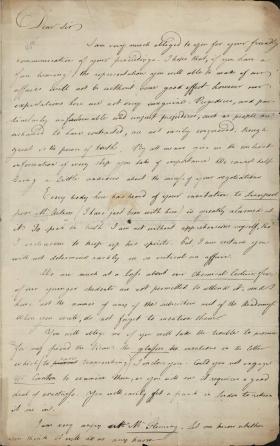 Dear Sir
I am very much obliged to you for your friendly
communication of your proceedings. I hope that, if you have a
fair hearing, the representation you will able to make of our
affairs will not be without some good effect, however our
expectations here are not very sanguine. Prejudices, and par-
ticularly unfavourable and unjust prejudices, such as people are
inclined to have contracted, are not easily vanquished, though
great is the power of truth. By all means give us the earliest
information of every step you take of importance. We cannot help
being a little anxious about the issue of your negotiations
Every body here has heard of your invitation to Liverpool
poor Mr. (I have just been with him) is greatly alarmed at
it. To speak the truth I am not without apprehensions myself, tho'
I endeavour to keep up his spirits, but I am certain you
will not determine hastily in so serious an affair.
We are much at a loss about our Chemical Lecture, few
of our younger students are not permitted to attend it, and I
have not the names of any of the subscribers out of the Academy
When you write, do not forget to mention them.
You will oblige me if you will take the trouble to procure
for my friend the glasses he mentions in the letter
which
I inclose you. Could you not engage
Mr Canton to examine them, as you will see it requires a good
deal of exactness. You will easily get a frank in London to return
it me in.
I am very angry with Mr. Fleming. Let me know whether
you think it will do us any harm.